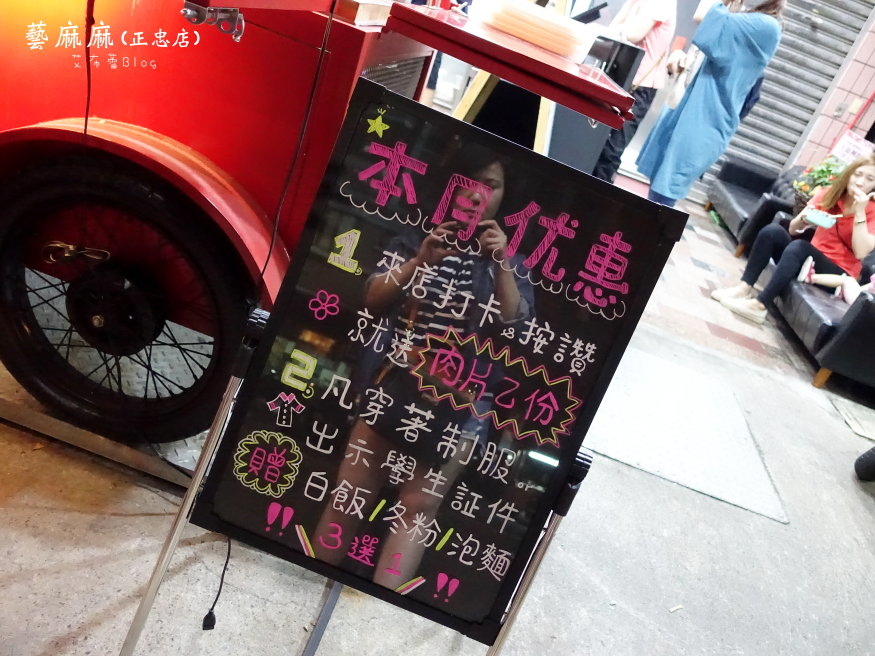 藝麻麻(正忠店)
艾布蕾Blog
本月优惠
1. 來店打卡&按讚
就送肉片乙份
2. 凡穿著制服or
出示學生証件
贈 白飯/冬粉/泡麵
!! 3選1 !!